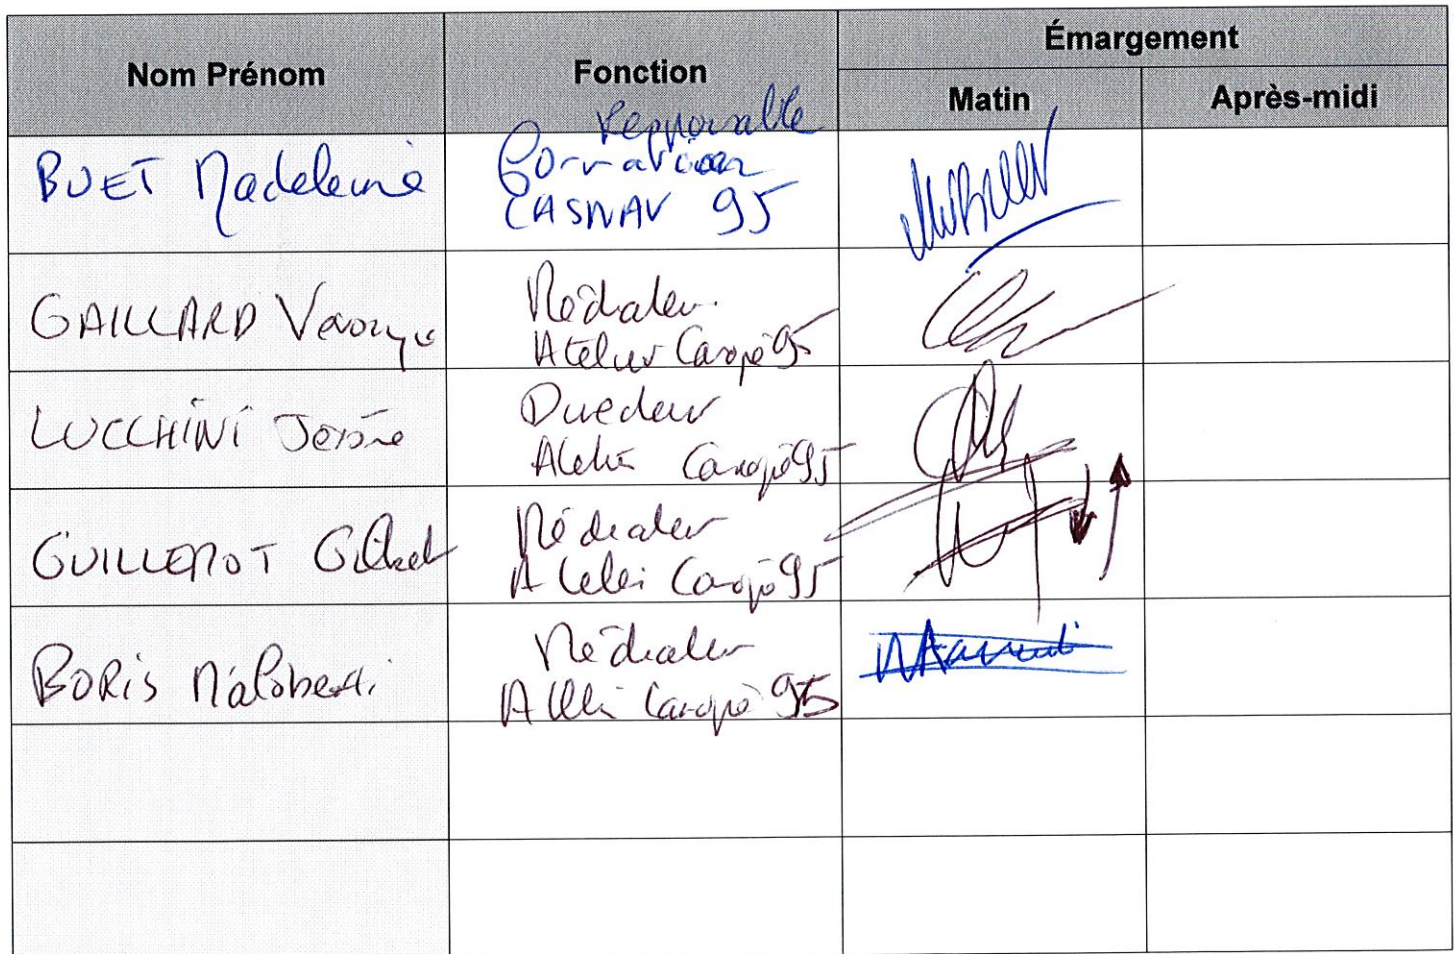 Nom Prénom
Fonction
Émargement
Matin
Après-midi
BUET Madeleine
responsable
formation
CASNAV 95
GAILLARD
Médiateur
Atelier Canopé 95
LUCCHINI Jérôme
Directeur
Atelier Canopé 95
GUILLEMOT Gilbert
Médiateur
Atelier Canopé 95
BORIS
Médiateur
Atelier Canopé 95